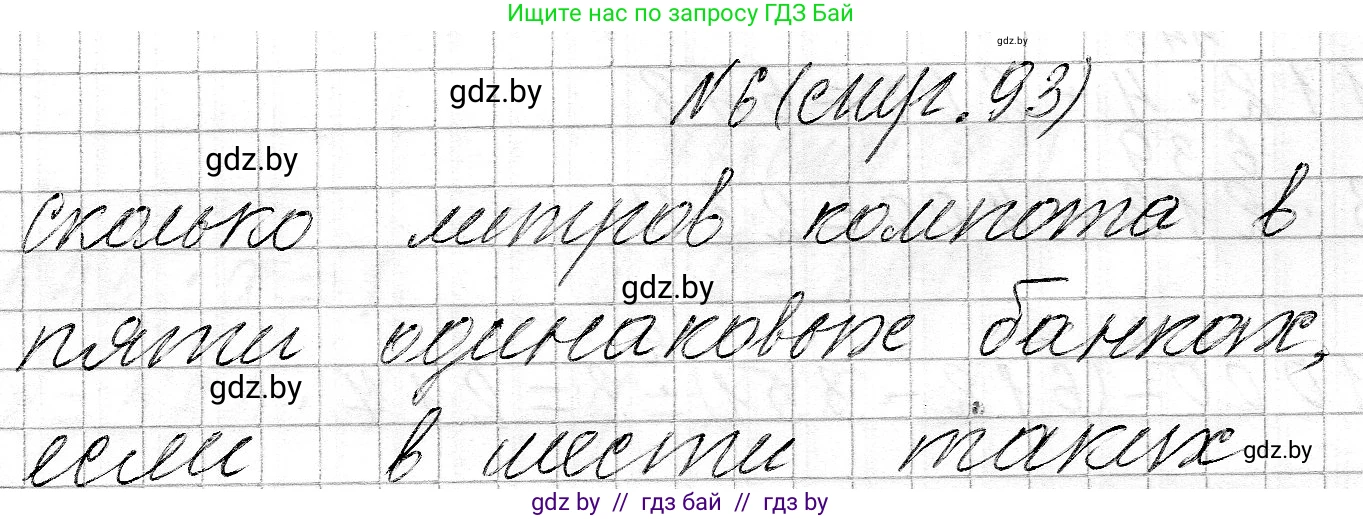 Ищите нас по запросу ГДЗ Бай
gdz.by
gdz.by
№6 (снуг. 93)
gdz.by
сколько литров компота в
gdz.by
пяти одинаковых банках,
gdz.by
если в шести таких
gdz.by
gdz.by // гдз бай // гдз by